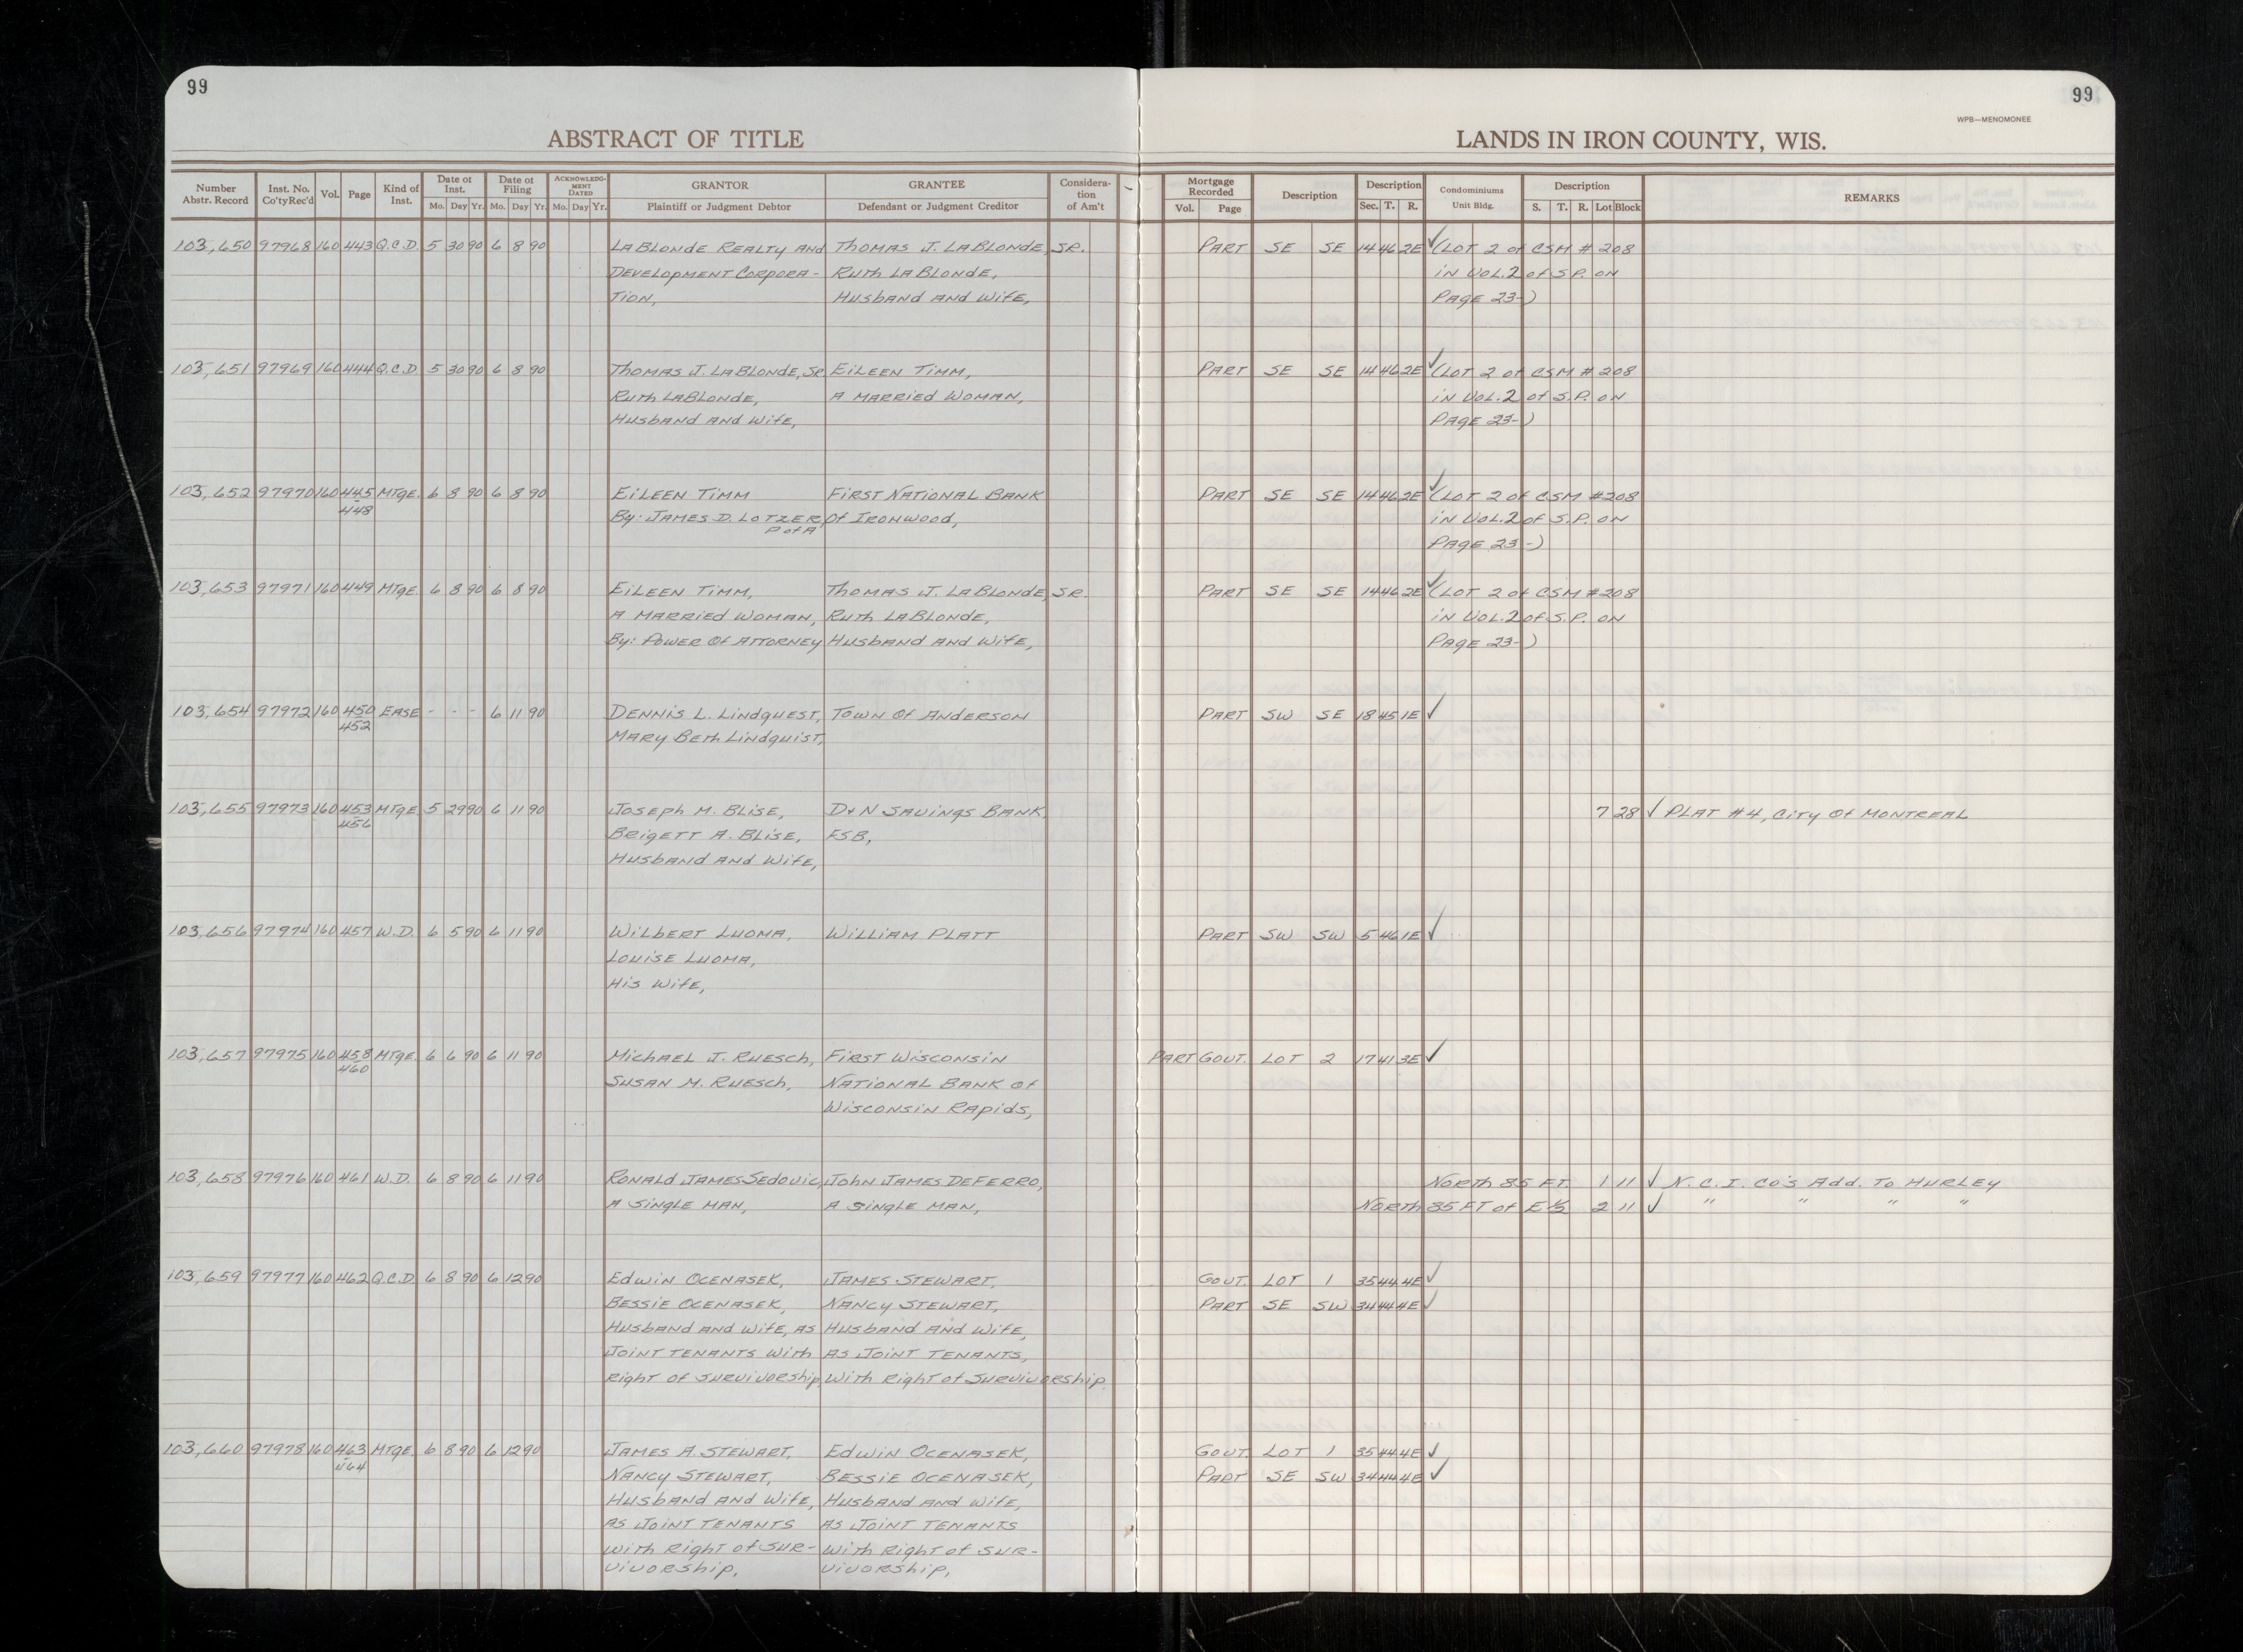 99
99
WPB—MENOMONEE
ABSTRACT OF TITLE
LANDS IN IRON COUNTY, WIS.
Number Abstr. Record | Inst. No. Co'ty Rec'd | Vol. | Page | Kind of Inst. | Date of Inst. Mo. Day Yr. | Date of Filing Mo. Day Yr. | ACKNOWLEDGMENT DATED Mo. Day Yr. | GRANTOR Plaintiff or Judgment Debtor | GRANTEE Defendant or Judgment Creditor | Consideration of Am't | Mortgage Recorded Vol. Page | Description | Description Sec. T. R. | Condominiums Unit Bldg. | Description S. T. R. Lot Block | REMARKS
103,650 97968 160 443 Q.C.D. 5 30 90 6 8 90 LABLONDE REALTY AND THOMAS J. LABLONDE, SR. PART SE SE 14 46 2E ✓ (LOT 2 of CSM # 208
DEVELOPMENT CORPORA- RUTH LABLONDE, IN VOL. 2 of S.P. ON
TION, HUSBAND AND WIFE, PAGE 23-)
103,651 97969 160 444 Q.C.D. 5 30 90 6 8 90 THOMAS J. LABLONDE, SR EILEEN TIMM, PART SE SE 14 46 2E ✓ (LOT 2 of CSM # 208
RUTH LABLONDE, A MARRIED WOMAN, IN VOL. 2 of S.P. ON
HUSBAND AND WIFE, PAGE 23-)
103,652 97970 160 445 MTGE. 6 8 90 6 8 90 EILEEN TIMM FIRST NATIONAL BANK PART SE SE 14 46 2E ✓ (LOT 2 of CSM #208
448 By: JAMES D. LOTZER, Of IRONWOOD, IN VOL. 2 of S.P. ON
P of A PAGE 23-)
103,653 97971 160 449 MTGE. 6 8 90 6 8 90 EILEEN TIMM, THOMAS J. LABLONDE, SR. PART SE SE 14 46 2E ✓ (LOT 2 of CSM #208
A MARRIED WOMAN, RUTH LABLONDE, IN VOL. 2 of S.P. ON
By: POWER Of ATTORNEY HUSBAND AND WIFE, PAGE 23-)
103,654 97972 160 450 EASE - - - 6 11 90 DENNIS L. LINDQUEST, TOWN Of ANDERSON PART SW SE 18 45 1E ✓
452 MARY BETH LINDQUIST,
103,655 97973 160 453 MTGE 5 29 90 6 11 90 JOSEPH M. BLISE, D & N SAVINGS BANK. 7 28 ✓ PLAT #4, CITY Of MONTREAL
456 BRIGETT A. BLISE, FSB,
HUSBAND AND WIFE,
103,656 97974 160 457 W.D. 6 5 90 6 11 90 WILBERT LUOMA, WILLIAM PLATT PART SW SW 5 46 1E ✓
LOUISE LUOMA,
HIS WIFE,
103,657 97975 160 458 MTGE. 6 6 90 6 11 90 MICHAEL J. RUESCH, FIRST WISCONSIN PART GOVT. LOT 2 17 41 3E ✓
460 SUSAN M. RUESCH, NATIONAL BANK Of
WISCONSIN RAPIDS,
103,658 97976 160 461 W.D. 6 8 90 6 11 90 RONALD JAMES SEDOVIC, JOHN JAMES DEFERRO, NORTH 85 FT. 1 11 ✓ N.C.I. CO'S ADD. TO HURLEY
A SINGLE MAN, A SINGLE MAN, NORTH 85 FT of E½ 2 11 ✓ " " " "
103,659 97977 160 462 Q.C.D. 6 8 90 6 12 90 EDWIN OCENASEK, JAMES STEWART, GOVT. LOT 1 35 44 4E ✓
BESSIE OCENASEK, NANCY STEWART, PART SE SW 34 44 4E ✓
HUSBAND AND WIFE, AS HUSBAND AND WIFE,
JOINT TENANTS WITH AS JOINT TENANTS,
RIGHT OF SURVIVORSHIP, WITH RIGHT of SURVIVORSHIP
103,660 97978 160 463 MTGE. 6 8 90 6 12 90 JAMES A. STEWART, EDWIN OCENASEK, GOVT. LOT 1 35 44 4E ✓
464 NANCY STEWART, BESSIE OCENASEK, PART SE SW 34 44 4E ✓
HUSBAND AND WIFE, HUSBAND AND WIFE,
AS JOINT TENANTS AS JOINT TENANTS
WITH RIGHT of SUR- WITH RIGHT of SUR-
VIVORSHIP, VIVORSHIP,